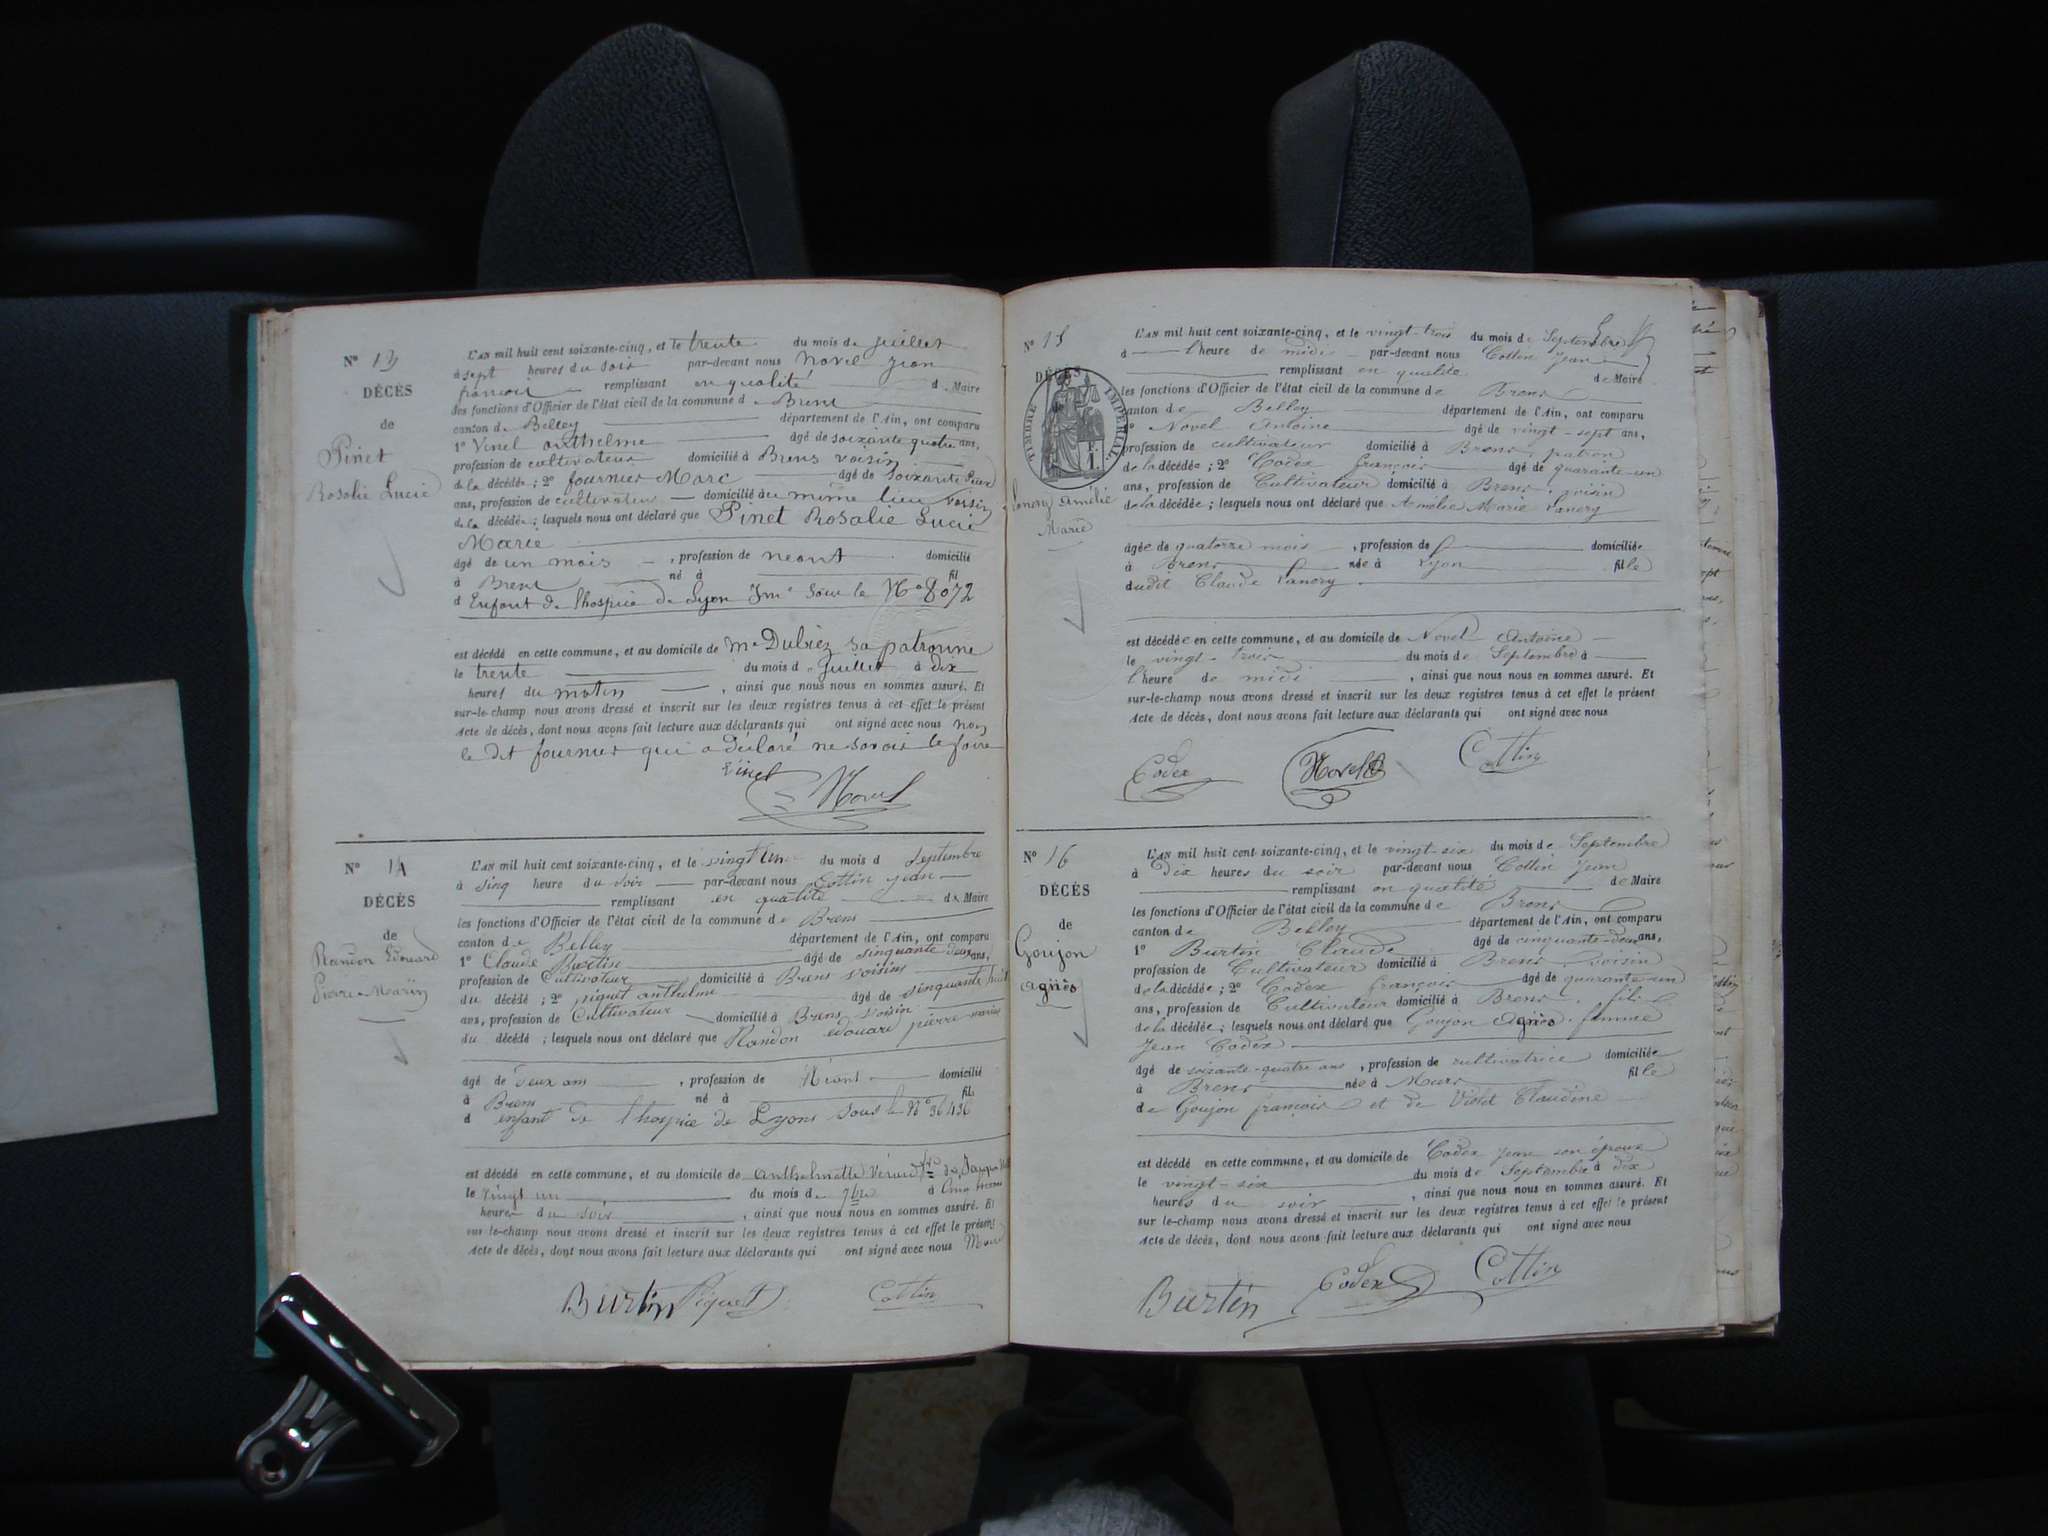 N° 13
DÉCÈS
de
Pinet
Rosalie Lucie
L'AN mil huit cent soixante-cinq, et le trente du mois de juillet
à sept heures du soir par-devant nous Novel jean
françois remplissant en qualité de Maire
des fonctions d'Officier de l'état civil de la commune d Brens
canton de Belley département de l'Ain, ont comparu
1° Vinel anthelme âgé de soixante quatre ans,
profession de cultivateur domicilié à Brens voisin
de la décédée ; 2° fournier Marc âgé de soixante
ans, profession de cultivateur domicilié au même lieu voisin
de la décédée ; lesquels nous ont déclaré que Pinet Rosalie Lucie
Marie
âgé de un mois , profession de neant domicilié
à Brens né à fil
d Enfant de l'hospice de Lyon sous le N° 8072
est décédé en cette commune, et au domicile de Me Dubiez sa patronne
le trente du mois d juillet à dix
heures du matin , ainsi que nous nous en sommes assuré. Et
sur-le-champ nous avons dressé et inscrit sur les deux registres tenus à cet effet le présent
Acte de décès, dont nous avons fait lecture aux déclarants qui ont signé avec nous non
le dit fournier qui a déclaré ne savoir le faire
Vinel Novel
N° 14
DÉCÈS
de
Randon Edouard
Pierre Marin
L'AN mil huit cent soixante-cinq, et le vingt un du mois d Septembre
à sinq heure du soir par-devant nous Cottin jean
remplissant en qualité de Maire
les fonctions d'Officier de l'état civil de la commune de Brens
canton de Belley département de l'Ain, ont comparu
1° Claude Burtin âgé de sinquante deux ans,
profession de Cultivateur domicilié à Brens voisins
du décédé ; 2° piguet anthelme âgé de sinquante huit
ans, profession de Cultivateur domicilié à Brens voisin
du décédé ; lesquels nous ont déclaré que Randon edouard pierre marin
âgé de deux ans , profession de Néant domicilié
à Brens né à fils
d enfant de l'hospice de Lyons sous le N° 36436
est décédé en cette commune, et au domicile de anthelmette
le vingt un du mois de 7bre à Cinq
heures du soir , ainsi que nous nous en sommes assuré. Et
sur-le-champ nous avons dressé et inscrit sur les deux registres tenus à cet effet le présent
Acte de décès, dont nous avons fait lecture aux déclarants qui ont signé avec nous Maire
Burtin Piguet Cottin
N° 15
DÉCÈS
TIMBRE IMPÉRIAL.
F.
1.
Lanery Amélie
Marie
L'AN mil huit cent soixante-cinq, et le vingt-trois du mois de Septembre
à l'heure de midi par-devant nous Cottin Jean
remplissant en qualité de Maire
les fonctions d'Officier de l'état civil de la commune de Brens
canton de Belley département de l'Ain, ont comparu
1° Novel Antoine âgé de vingt-sept ans,
profession de cultivateur domicilié à Brens, patron
de la décédée ; 2° Codex françois âgé de quarante-un
ans, profession de Cultivateur domicilié à Brens, voisin
de la décédée ; lesquels nous ont déclaré que Amélie Marie Lanery
âgée de quatorze mois , profession de domiciliée
à Brens née à Lyon fille
dudit Claude Lanery
est décédée en cette commune, et au domicile de Novel Antoine
le vingt-trois du mois de Septembre à
l'heure de midi , ainsi que nous nous en sommes assuré. Et
sur-le-champ nous avons dressé et inscrit sur les deux registres tenus à cet effet le présent
Acte de décès, dont nous avons fait lecture aux déclarants qui ont signé avec nous
Codex Novel Cottin
N° 16
DÉCÈS
de
Goujon
agnès
L'AN mil huit cent soixante-cinq, et le vingt-six du mois de Septembre
à Dix heures du soir par-devant nous Cottin Jean
remplissant en qualité de Maire
les fonctions d'Officier de l'état civil de la commune de Brens
canton de Belley département de l'Ain, ont comparu
1° Burtin Claude âgé de cinquante-deux ans,
profession de Cultivateur domicilié à Brens, voisin
de la décédée ; 2° Codex françois âgé de quarante-un
ans, profession de Cultivateur domicilié à Brens, fils
de la décédée ; lesquels nous ont déclaré que Goujon Agnès, femme
Jean Codex
âgé de soixante-quatre ans , profession de cultivatrice domiciliée
à Brens née à Murs fille
de Goujon françois et de Violet Claudine
est décédé en cette commune, et au domicile de Codex Jean son époux
le vingt-six du mois de Septembre à dix
heures du soir , ainsi que nous nous en sommes assuré. Et
sur le-champ nous avons dressé et inscrit sur les deux registres tenus à cet effet le présent
Acte de décès, dont nous avons fait lecture aux déclarants qui ont signé avec nous
Burtin Codex Cottin